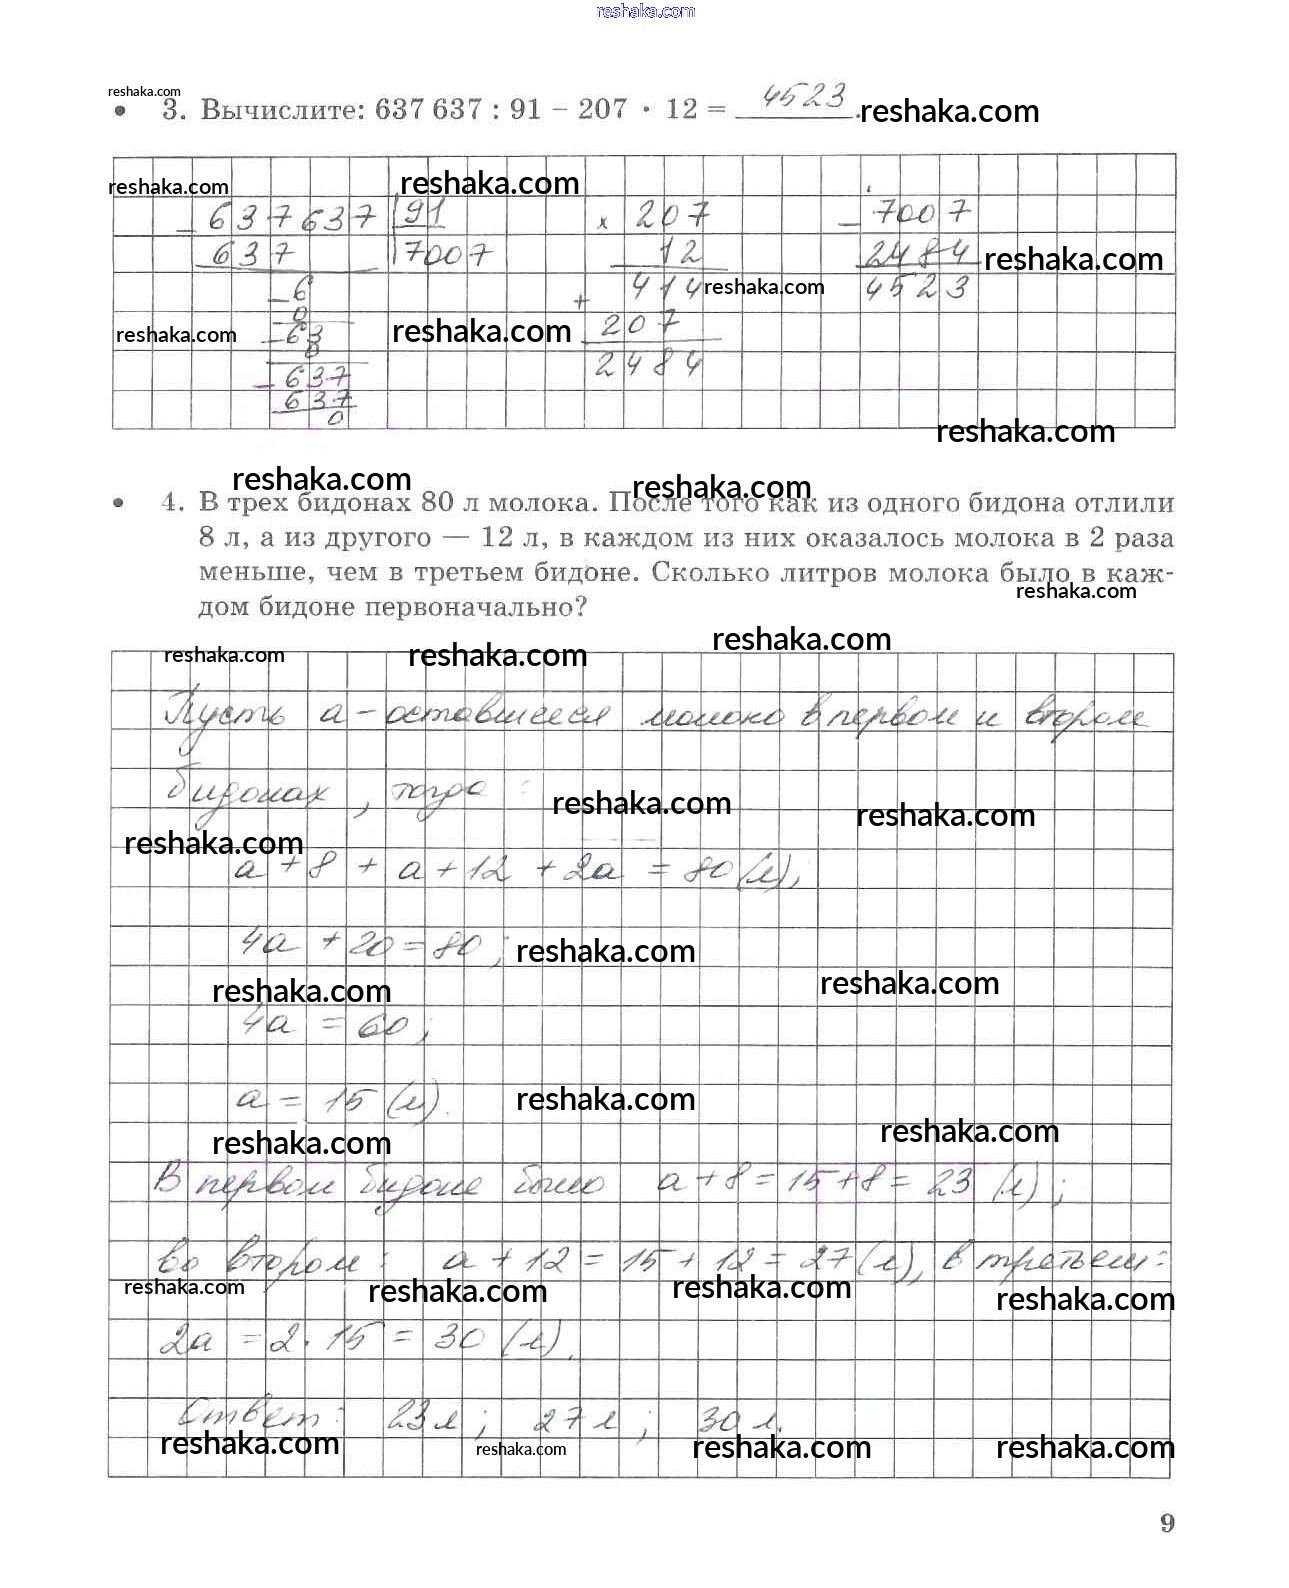 reshaka.com
reshaka.com
3. Вычислите: 637 637 : 91 – 207 · 12 = 4523. reshaka.com
reshaka.com reshaka.com
– 637637 91 × 207 – 7007
637 7007 12 2484 reshaka.com
– 6 + 414 reshaka.com 4523
0 207
reshaka.com – 63 reshaka.com
0 2484
– 637
637
0
reshaka.com
reshaka.com reshaka.com
4. В трех бидонах 80 л молока. После того как из одного бидона отлили
8 л, а из другого — 12 л, в каждом из них оказалось молока в 2 раза
меньше, чем в третьем бидоне. Сколько литров молока было в каж-
дом бидоне первоначально?
reshaka.com
reshaka.com
reshaka.com reshaka.com
Пусть a – оставшееся молоко в первом и втором
бидонах, тогда:
reshaka.com reshaka.com
reshaka.com
a + 8 + a + 12 + 2a = 80 (л);
4a + 20 = 80; reshaka.com
reshaka.com reshaka.com
4a = 60;
a = 15 (л). reshaka.com
reshaka.com reshaka.com
В первом бидоне было a + 8 = 15 + 8 = 23 (л);
во втором: a + 12 = 15 + 12 = 27 (л), в третьем:
reshaka.com reshaka.com reshaka.com reshaka.com
2a = 2 · 15 = 30 (л).
Ответ: 23 л; 27 л; 30 л.
reshaka.com reshaka.com reshaka.com reshaka.com
9